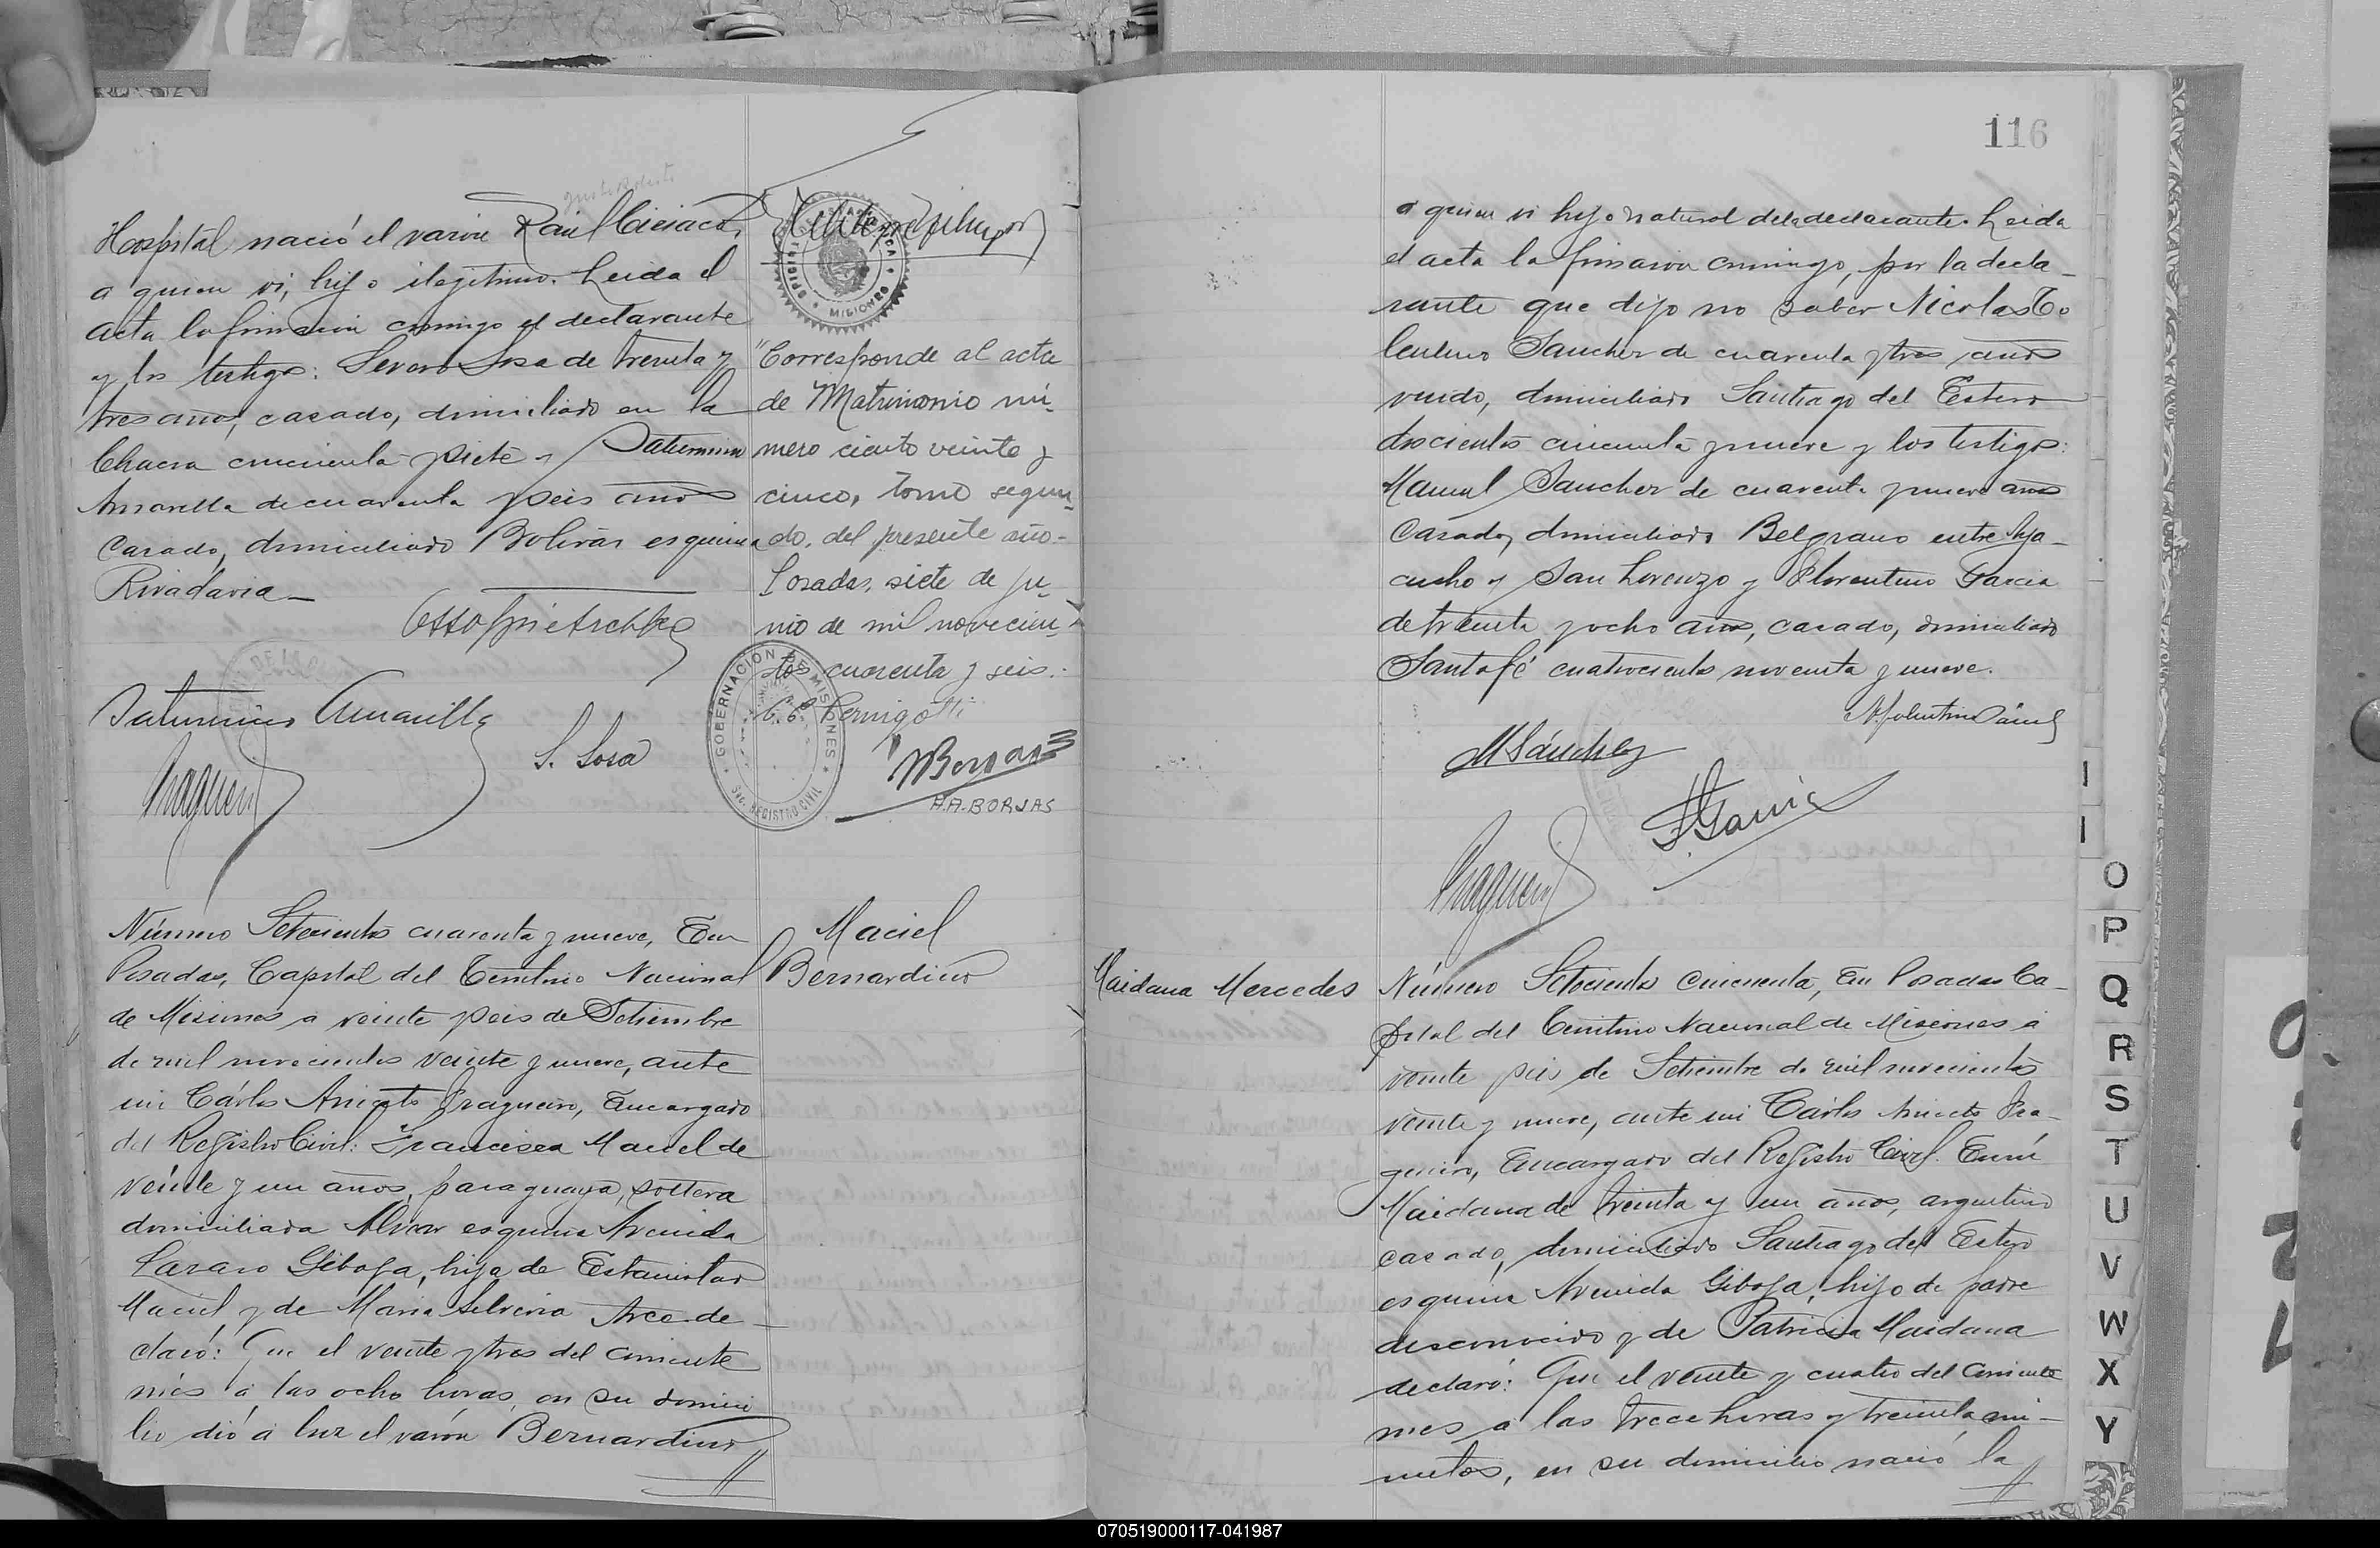 Hospital nació el varón Raúl Ciriaco,
a quien vi, hijo ilegítimo. Leida el
acta la firmaron conmigo el declarante
y los testigos: Severo Sosa de treinta y
tres años, casado, domiciliado en la
Chacra cincuenta y siete y Saturnino
Amarilla de cuarenta y seis años
casado, domiciliado Bolívar esquina
Rivadavia
Saturnino Amarilla
S. Sosa
"Corresponde al acta
de Matrimonio nú-
mero ciento veinte y
cinco, tomo segun-
do, del presente año-
Posadas, siete de ju-
nio de mil novecien-
tos cuarenta y seis.
GOBERNACION DE MISIONES
REGISTRO CIVIL
A.A. BORJAS
Maciel
Bernardino
Número Setecientos cuarenta y nueve, En
Posadas, Capital del Territorio Nacional
de Misiones a veinte y seis de Setiembre
de mil novecientos veinte y nueve, ante
mi Cárlos Aniceto Fragueiro, Encargado
del Registro Civil: Francisca Maciel de
veinte y un años, paraguaya, soltera
domiciliada Alvear esquina Avenida
Lazaro Gibaja, hija de Estanislao
Maciel y de Maria Silveria Arce de-
claró: Que el veinte y tres del corriente
mes á las ocho horas, en su domici
lio dió á luz el varón Bernardino
116
a quien vi hijo natural de la declarante. Leida
el acta la firmaron conmigo, por la decla-
rante que dijo no saber Nicolas To
lentino Sanchez de cuarenta y tres años
viudo, domiciliado Santiago del Estero
doscientos cincuenta y nueve y los testigos:
Manuel Sanchez de cuarenta y nueve años
Casado, domiciliado Belgrano entre Aya-
cucho y San Lorenzo y Florentino Garcia
de treinta y ocho años, casado, domiciliado
Santa fé cuatrocientos noventa y nueve.
M Sánchez
F Garcia
Maidana Mercedes
Número Setecientos cincuenta, En Posadas Ca-
pital del Territorio Nacional de Misiones á
veinte y seis de Setiembre de mil novecientos
veinte y nueve, ante mi Cárlos Aniceto Fra-
gueiro, Encargado del Registro Civil.
Maidana de treinta y un años, argentino
casado, domiciliado Santiago del Estero
esquina Avenida Gibaja, hijo de padre
desconocido y de Patricia Maidana
declaró: Que el veinte y cuatro del corriente
mes a las trece horas y treinta mi-
nutos, en su domicilio nació la
I
I
O
P
Q
R
S
T
U
V
W
X
Y
070519000117-041987